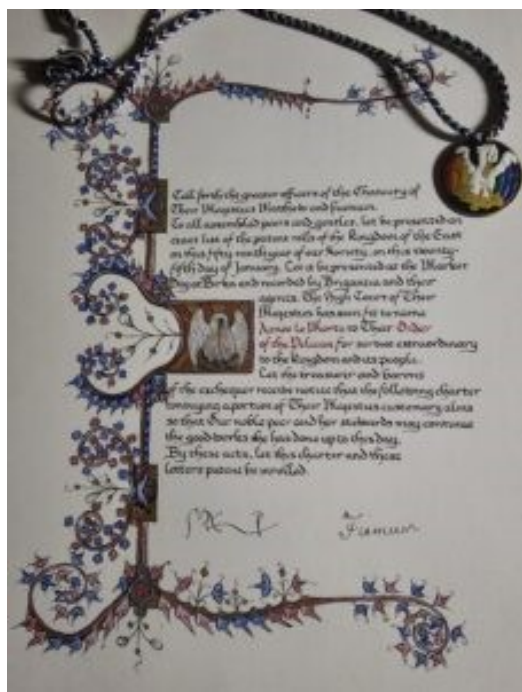 Call forth the greater officers of the Chancery of
Their Majesties Matthew and Fiamuin.
To all assembled peers and gentles, let be presented an
exact list of the patent rolls of the Kingdom of the East
on this fifty ninth year of our Society, on this twenty-
fifth day of January. Let it be presented at the Market
Day at Birka and recorded by Brigantia and their
agents. The High Court of Their
Majesties has seen fit to name
to Their Order
of the Pelican for service extraordinary
to the Kingdom and its people.
Let the treasurer and barons
of the exchequer receive notice that the following charter
conveying a portion of Their Majesties customary alms
so that Our noble peer and her stewards may continue
the good works she has done up to this day.
By these acts, let this charter and these
letters patent be enrolled.